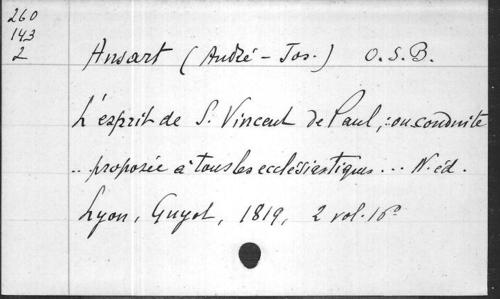 260
143
2
Ansart (André - Jos.) O.S.B.
L'esprit de S. Vincent de Paul, : ou conduite
.. proposée à tous les ecclésiastiques ... N. éd.
Lyon, Guyot, 1819, 2 vol. 16°